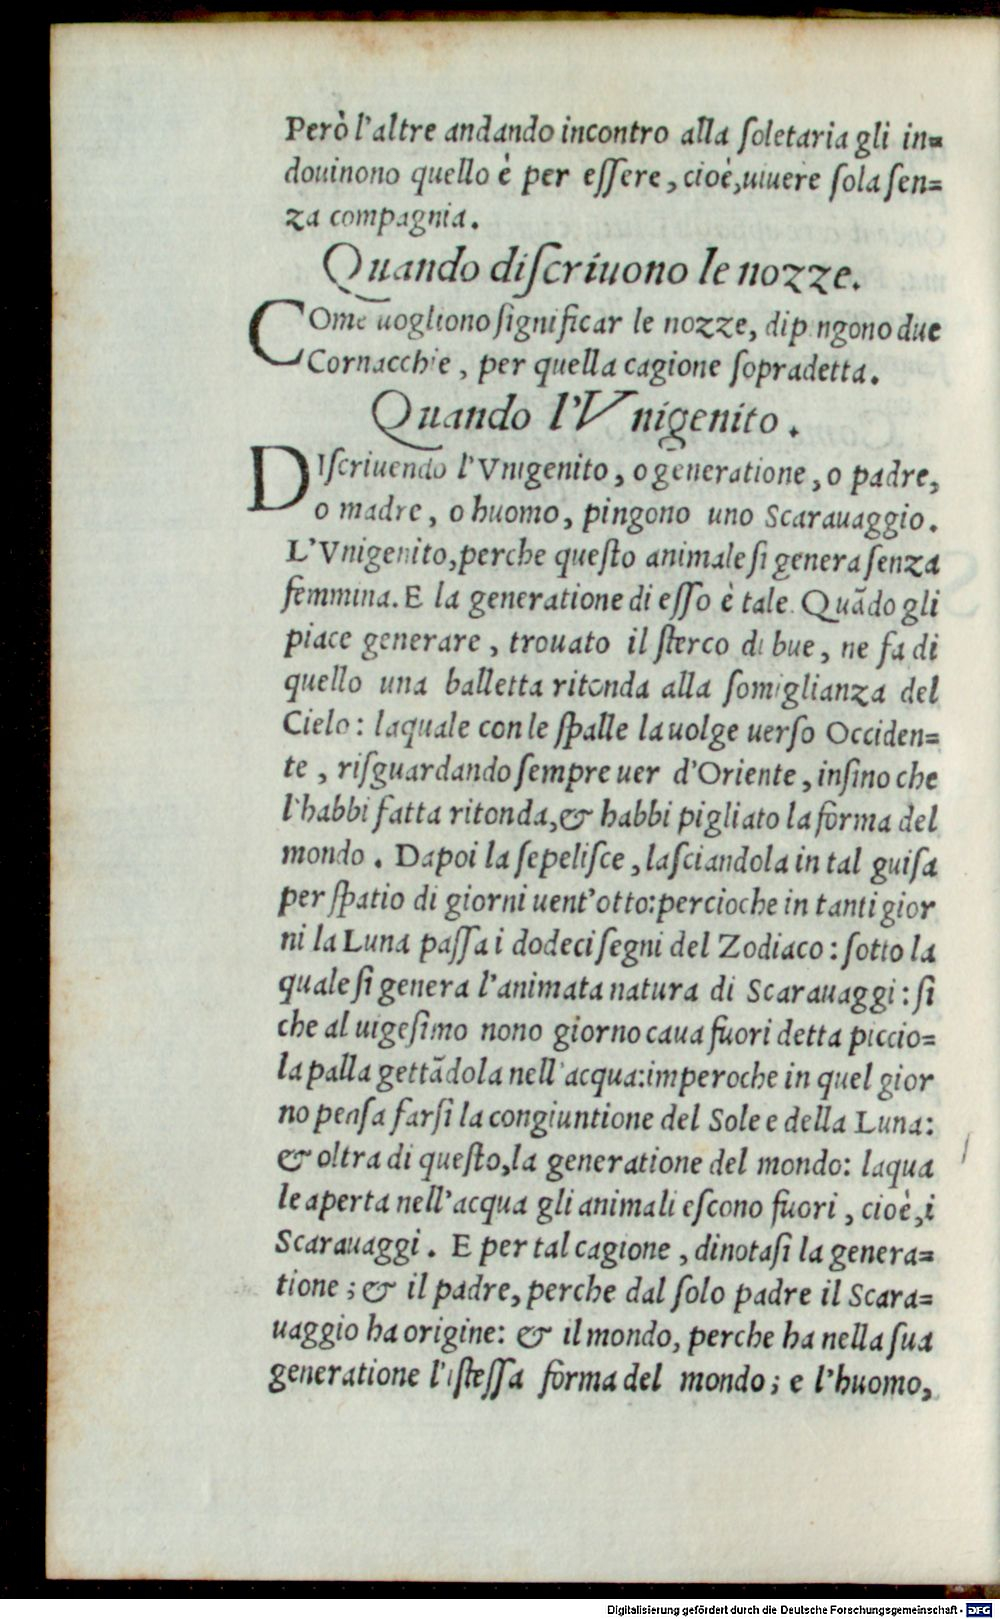 Però l'altre andando incontro alla ſoletaria gli in=
douinono quello è per eſſere, cioè, uiuere ſola ſen=
za compagnia.
Quando diſcriuono le nozze.
COme uogliono ſignificar le nozze, dipingono due
Cornacchie, per quella cagione ſopradetta.
Quando l'Vnigenito.
DIſcriuendo l'Vnigenito, o generatione, o padre,
o madre, o huomo, pingono uno Scarauaggio.
L'Vnigenito, perche queſto animale ſi genera ſenza
femmina. E la generatione di eſſo è tale. Quãdo gli
piace generare, trouato il ſterco di bue, ne fa di
quello una balletta ritonda alla ſomiglianza del
Cielo: laquale con le ſpalle la uolge uerſo Occiden=
te, riſguardando ſempre uer d'Oriente, inſino che
l'habbi fatta ritonda, & habbi pigliato la forma del
mondo. Dapoi la ſepeliſce, laſciandola in tal guiſa
per ſpatio di giorni uent'otto: percioche in tanti gior
ni la Luna paſſa i dodeci ſegni del Zodiaco: ſotto la
quale ſi genera l'animata natura di Scarauaggi: ſi
che al uigeſimo nono giorno caua fuori detta piccio=
la palla gettãdola nell'acqua: imperoche in quel gior
no penſa farſi la congiuntione del Sole e della Luna:
& oltra di queſto, la generatione del mondo: laqua
le aperta nell'acqua gli animali eſcono fuori, cioè, i
Scarauaggi. E per tal cagione, dinotaſi la genera=
tione; & il padre, perche dal ſolo padre il Scara=
uaggio ha origine: & il mondo, perche ha nella ſua
generatione l'iſteſſa forma del mondo; e l'huomo,
Digitalisierung gefördert durch die Deutsche Forschungsgemeinschaft - DFG